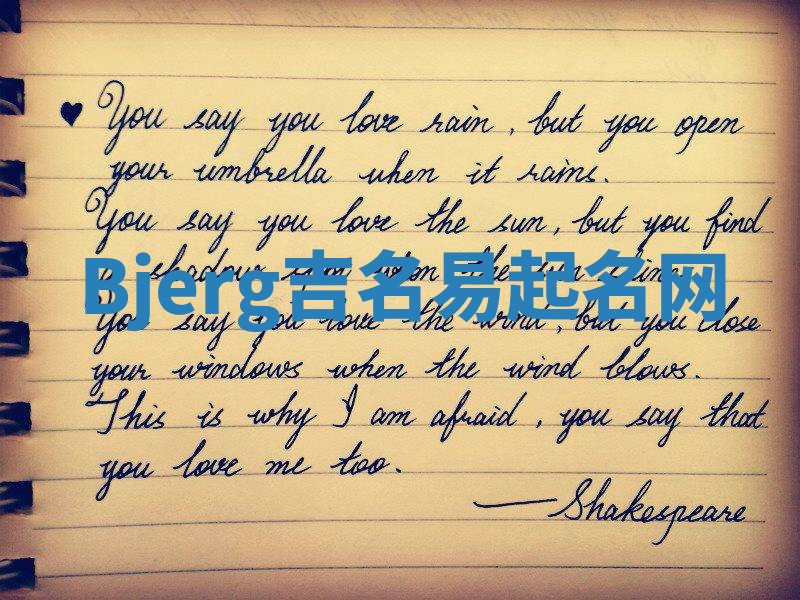 ♥ You say you love rain, but you open
your umbrella when it rains.
You say you love the sun, but you find
a shadow spot when the sun shines.
Bjerg吉名易起名网
You say you love the wind, but you close
your windows when the wind blows.
This is why I am afraid, you say that
you love me too.
— Shakespeare